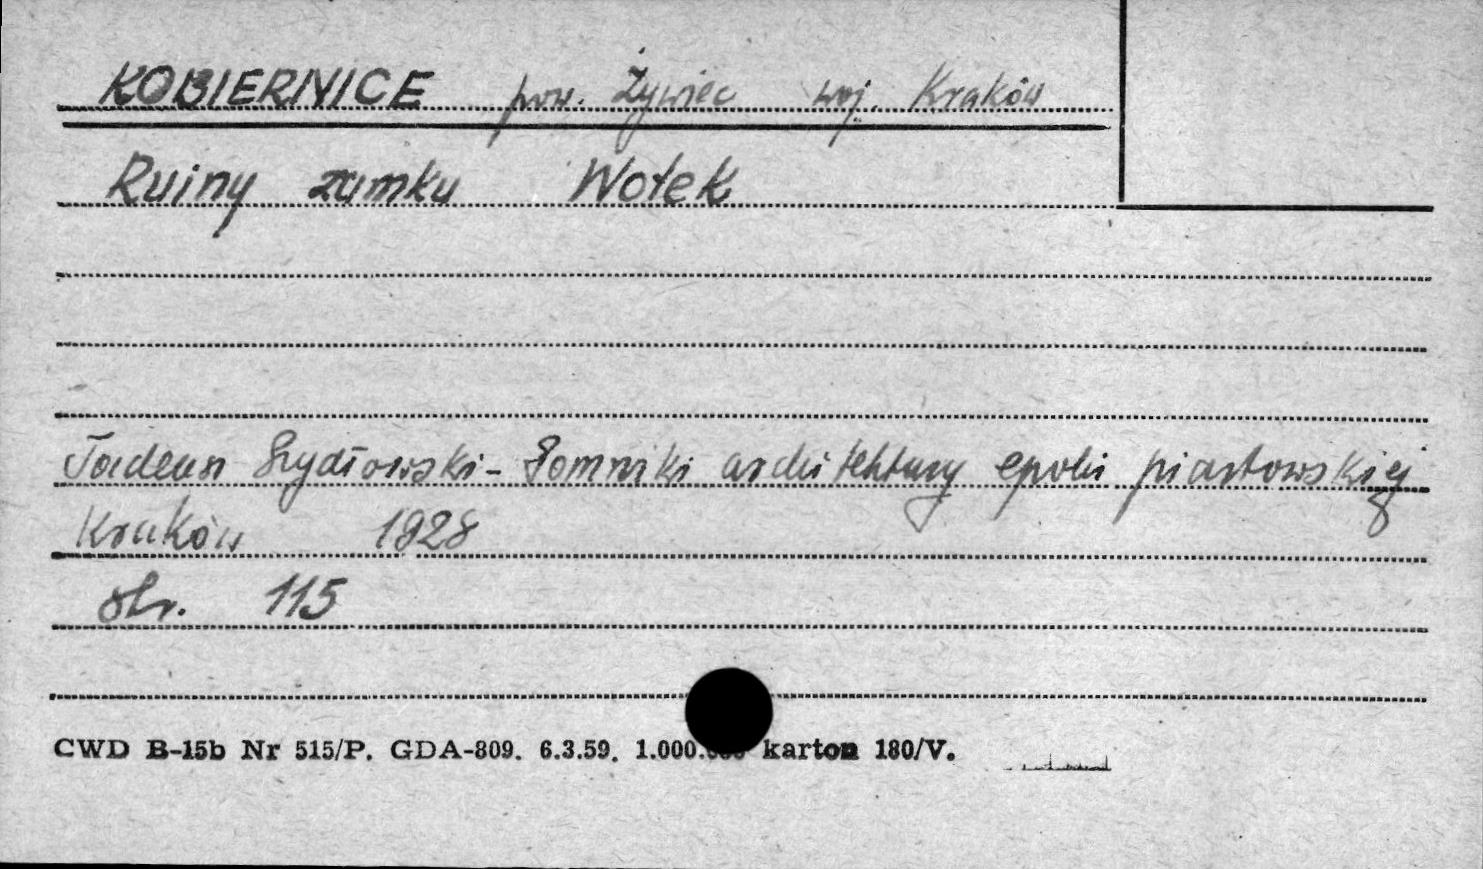 KOBIERNICE pow. Żywiec woj. Kraków
Ruiny zamku Wołek
Tadeusz Szydłowski - Pomniki architektury epoki piastowskiej
Kraków 1928
str. 115
CWD B-15b Nr 515/P. GDA-809. 6.3.59. 1.000.000 karton 180/V.